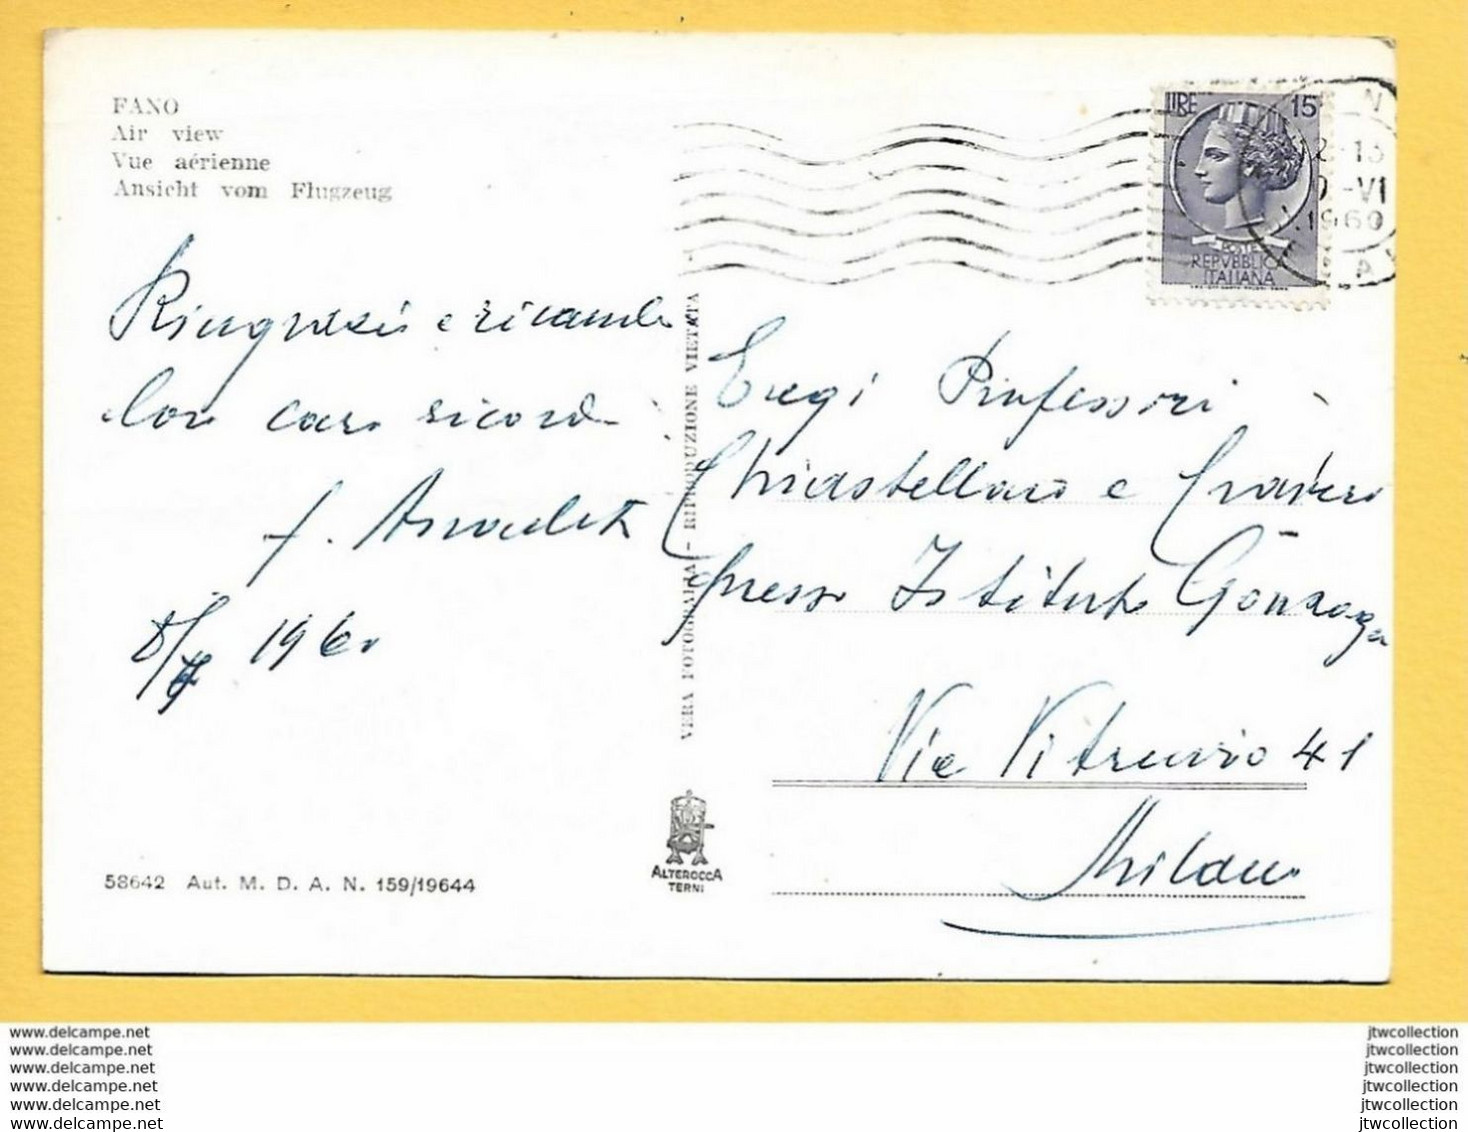 FANO
Air view
Vue aérienne
Ansicht vom Flugzeug
LIRE 15
POSTE
REPVBBLICA
ITALIANA
2-15
-VI
1960
Ringrazio e ricambio
loro caro ricordo
f.
8/ 1960
VERA FOTOGRAFIA - RIPRODUZIONE VIETATA
Egregi Professori
Chiastellaro e
presso Istituto Gonzaga
Via Vitruvio 41
Milano
58642 Aut. M. D. A. N. 159/19644
ALTEROCCA
TERNI
www.delcampe.net
www.delcampe.net
www.delcampe.net
www.delcampe.net
www.delcampe.net
www.delcampe.net
jtwcollection
jtwcollection
jtwcollection
jtwcollection
jtwcollection
jtwcollection